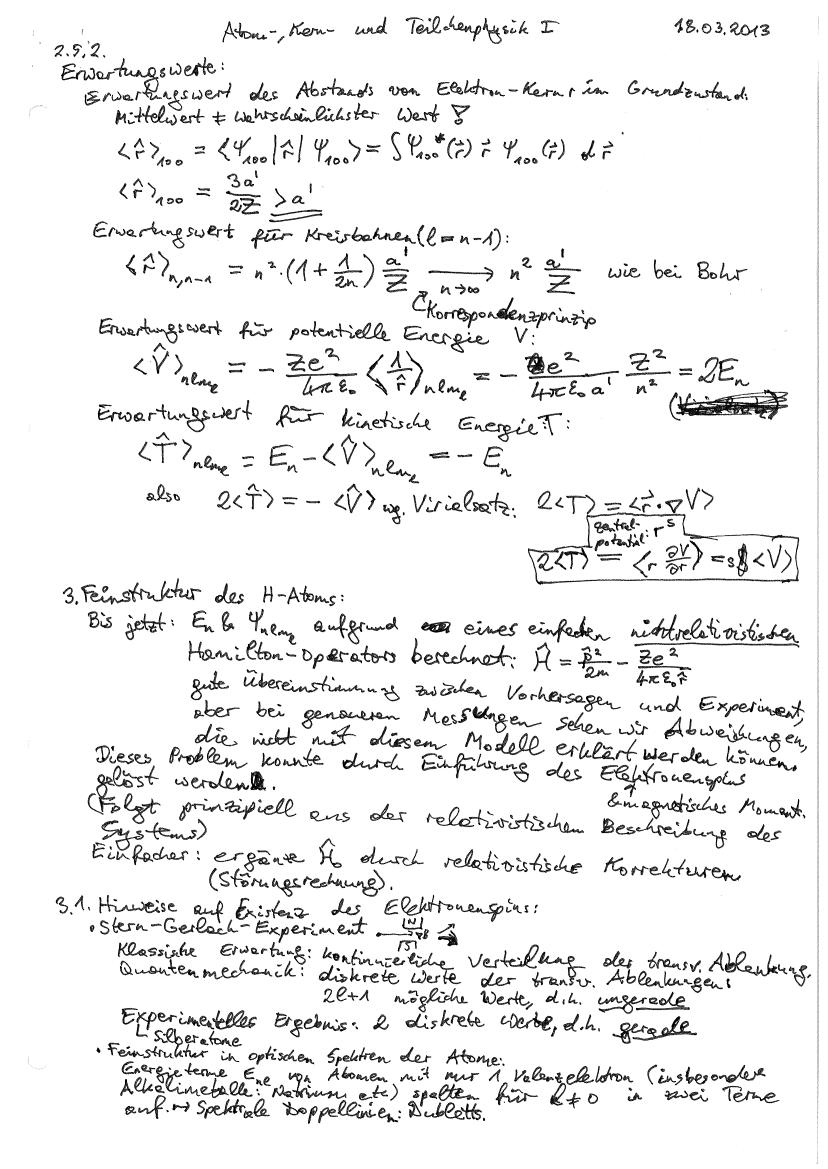 Atom-, Kern- und Teilchenphysik I 18.03.2013
2.5.2.
Erwartungswerte:
Erwartungswert des Abstands von Elektron-Kern r im Grundzustand:
Mittelwert ≠ wahrscheinlichster Wert !
⟨r̂⟩₁₀₀ = ⟨Ψ₁₀₀|r̂|Ψ₁₀₀⟩ = ∫Ψ₁₀₀*(r⃗) r⃗ Ψ₁₀₀(r⃗) dr⃗
⟨r̂⟩₁₀₀ = 3a'/2Z > a'
Erwartungswert für Kreisbahnen (l=n-1):
⟨r̂⟩n,n-1 = n²·(1+1/2n) a'/Z ⟶ n→∞ n² a'/Z wie bei Bohr
Korrespondenzprinzip
Erwartungswert für potentielle Energie V:
⟨V̂⟩nlmₑ = - Ze²/4πε₀ ⟨1/r̂⟩nlmₑ = - e²/4πε₀a' Z²/n² = 2Eₙ
Erwartungswert für kinetische Energie T:
⟨T̂⟩nlmₑ = Eₙ - ⟨V̂⟩nlmₑ = - Eₙ
also 2⟨T̂⟩ = - ⟨V̂⟩ wg. Virialsatz: 2⟨T⟩ = ⟨r⃗·∇V⟩
zentral-
potential: rˢ
2⟨T⟩ = ⟨r ∂V/∂r⟩ = s⟨V⟩
3. Feinstruktur des H-Atoms:
Bis jetzt: Eₙ & Ψnlmₑ aufgrund eines einfachen nichtrelativistischen
Hamilton-Operators berechnet: Ĥ = p̂²/2m - Ze²/4πε₀r̂
gute Übereinstimmung zwischen Vorhersagen und Experiment,
aber bei genaueren Messungen sehen wir Abweichungen,
die nicht mit diesem Modell erklärt werden können.
Dieses Problem konnte durch Einführung des Elektronenspins
gelöst werden. & magnetisches Moment.
(Folgt prinzipiell aus der relativistischen Beschreibung des
Systems)
Einfacher: ergänze Ĥ₀ durch relativistische Korrekturen
(Störungsrechnung).
3.1. Hinweise auf Existenz des Elektronenspins:
• Stern-Gerlach-Experiment |N| |S|
Klassische Erwartung: kontinuierliche Verteilung der transv. Ablenkung.
Quantenmechanik: diskrete Werte der transv. Ablenkungen:
2l+1 mögliche Werte, d.h. ungerade
Experimentelles Ergebnis: 2 diskrete Werte, d.h. gerade
Silberatome
• Feinstruktur in optischen Spektren der Atome:
Energieterme Eₙₑ von Atomen mit nur 1 Valenzelektron (insbesondere
Alkalimetalle: Natrium etc) spalten für l≠0 in zwei Terme
auf. → Spektrale Doppellinien: Dubletts.